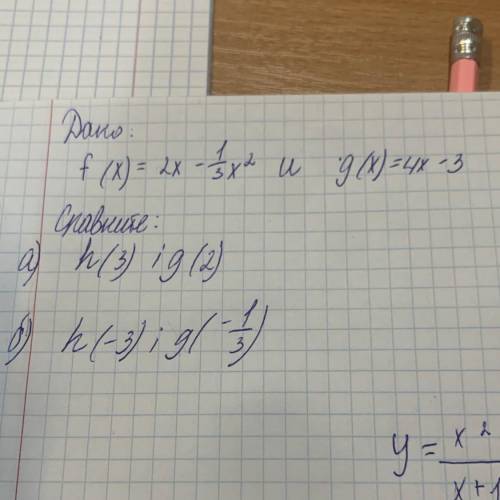 Дано:
f(x) = 2x - 1/3 x² и g(x) = 4x - 3
Сравните:
а) h(3) ; g(2)
б) h(-3) ; g(-1/3)
y = x² / x + 1